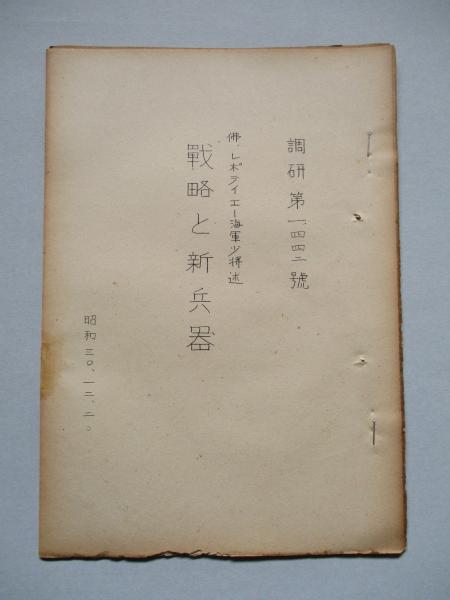 調研第一、四四二號
佛.レポライエー海軍少将述
戰略と新兵器
昭和三〇、一二、二〇